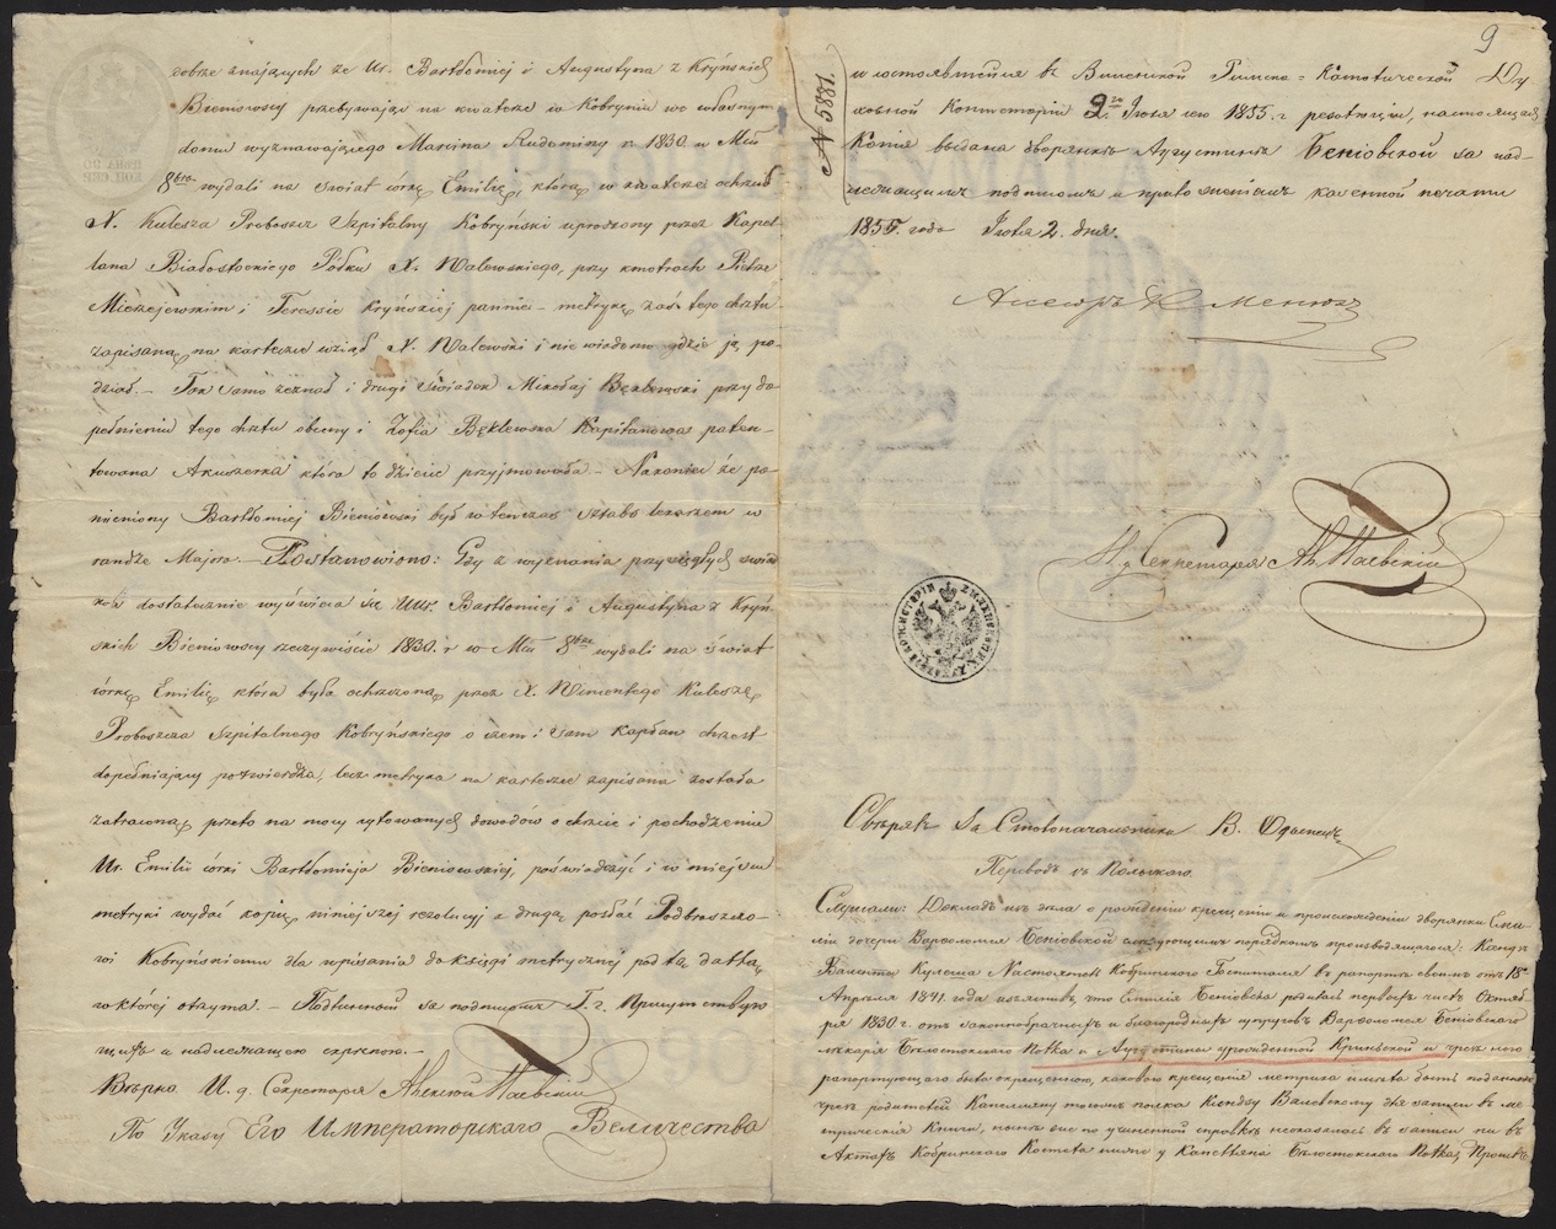 dobrze znających że Ur. Bartłomiej i Augustyna z Kryńskich
Bieniowscy przebywając na kwaterze w Kobryniu we własnym
domu wyznawającego Marcina Rudominy r. 1830. w Mcu
8bra wydali na świat córkę Emilię, którą w kwaterze ochrzcił
X. Kulesza Proboszcz Szpitalny Kobryński uproszony przez Kapel-
lana Białostockiego Półku X. Walewskiego, przy kmotrach Piotrze
Mierzejewskim i Teressie Kryńskiej pannie – metrykę zaś tego chrztu
zapisaną na karteczce wziął X. Walewski i nie wiadomo gdzie ją po-
dział. – Tak samo zeznał i drugi świadek Mikołaj Bęklewski przy do-
pełnieniu tego chrztu obecny i Zofia Bęklewska Kapitanowa paten-
towana Akuszerka która to dziecie przyjmowała. – Nakoniec że po-
mieniony Bartłomiej Bieniowski był wtenczas Sztabs lekarzem w
randze Majora. – Postanowiono: Gdy z wyznania przysięgłych świad-
ków dostatecznie wyświeca się Uur. Bartłomiej i Augustyna z Kryń-
skich Bieniowscy rzeczywiście 1830. r w Mcu 8bra wydali na świat
córkę Emilię która była ochrzczoną przez X. Wincentego Kuleszę
Proboszcza Szpitalnego Kobryńskiego o czem i sam Kapłan chrzest
dopełniający potwierdza, lecz metryka na karteczce zapisana została
zatraconą, przeto na mocy cytowanych dowodów o chrzcie i pochodzeniu
Ur. Emilii córki Bartłomieja Bieniowskiej, poświadczyć i w miejscu
metryki wydać kopię niniejszej rezolucyj a drugą posłać Podbrzezko-
wi Kobryńskiemu dla wpisania do księgi metrycznej pod tą dattą
w której otrzyma. – Подлинной за подписомъ Г. г. Присутствую
щихъ и надлежащею скрепою. –
Вѣрно И. д. Секретаря Алексѣй Паевскій
По Указу Его Императорскаго Величества
9
N 5881.
и состоявшейся въ Виленской Римско-Католической Ду
ховной Консисторіи 2го Іюля сего 1855. г резолюціи, настоящая
Копія выдана дворянкѣ Аугустинѣ Беніовской за над-
лежащимъ подписомъ и приложеніемъ казенной печати
1855. года Іюля 2. дня.
Ассесоръ К. 
И. д. Секретаря Ал. Паевскій
Свѣрялъ За Столоначальника В.
Переводъ съ Польскаго.
Слушали: Докладъ изъ дѣла о рожденіи крещеніи и происхожденіи дворянки Еми-
ліи дочери Варѳоломея Беніовской слѣдующимъ порядкомъ производящагося: Ксендзъ
Валенты Кулеша Настоятель Кобринскаго Госпиталя въ рапортѣ своемъ отъ 18го
Апрѣля 1841. года изъяснилъ, что Емилія Беніовска родилась первыхъ чиселъ Октяб-
ря 1830 г. отъ законнобрачныхъ и благородныхъ супруговъ Варѳоломея Беніовскаго
лекаря Бѣлостокскаго Полка и Аугустины урожденной Криньской и чрезъ него
рапортующаго была окрещенною, каковаго крещенія метрика имѣла быть поданною
чрезъ родителей Капелляну тогожъ полка Ксендзу Валевскому для записи въ ме-
трическія Книги, нынѣ же по учиненной справкѣ неоказалось въ записи ни въ
Актахъ Кобринскаго Костела ниже у Капелляна Бѣлостокскаго Полка, Просилъ